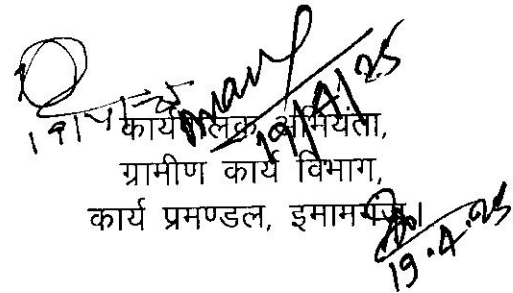 19/4/25
19/4/25
कार्यपालक अभियंता,
ग्रामीण कार्य विभाग,
कार्य प्रमण्डल, इमामगंज।
19.4.25